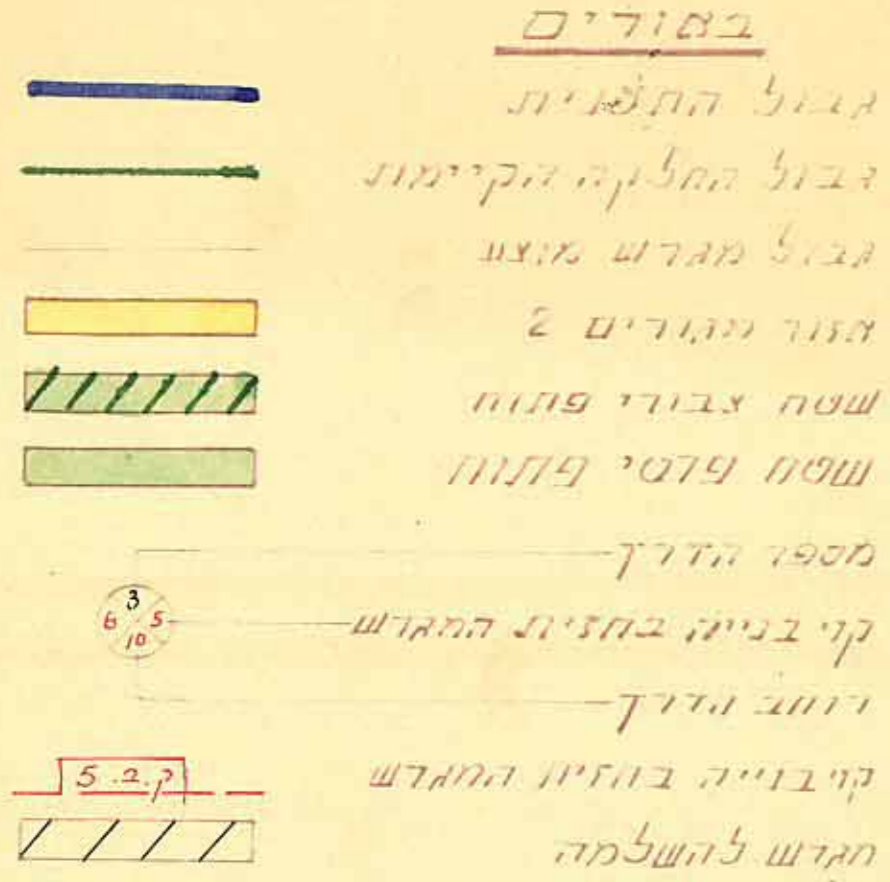 באורים
גבול התכנית
גבול החלקה הקיימות
גבול מגרש מוצע
אזור מגורים 2
שטח צבורי פתוח
שטח פרטי פתוח
מספר הדרך
3
6 5
10
קוי בנייה בחזית המגרש
רוחב הדרך
ק.ב. 5
קוי בנייה בחזית המגרש
מגרש להשלמה